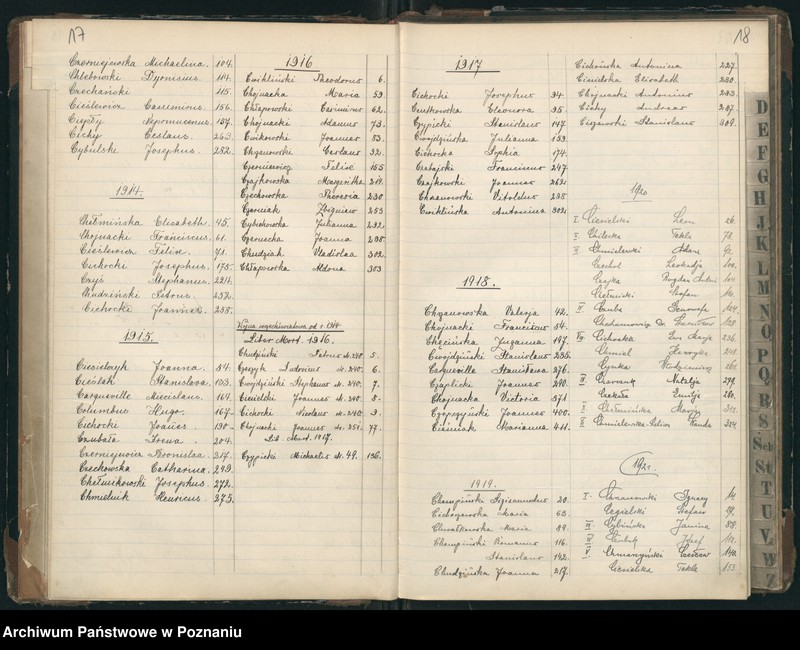 17
Czerniejewska Michaelina. 104.
Chlebowski Dyonisius 114.
Czechański 115.
Cieślewicz Casimirus 156.
Ciepły Nepomucenus. 157.
Cichy Ceslaus. 263.
Cybulski Josephus. 282.
1914.
Chełmińska Elisabeth. 45.
Chojnacki Franciscus. 61.
Cieślewicz Felix. 71.
Cichocki Josephus. 175.
Czyż Stephanus. 224.
Chudziński Petrus. 232.
Cichocki Joannes. 258.
1915.
Ciesiołczyk Joanna. 84.
Cieślak Stanislava. 103.
Cargueville Miecislaus. 164.
Columbus Hugo. 167.
Cichocki Joannes. 190.
Czubała Irena. 204.
Czerniejewicz Bronislaa. 217.
Czechowska Catharina. 249.
Chełmikowski Josephus. 272.
Chmielnik Henricus. 275.
1916
Ćwikliński Theodorus 6.
Chojnacka Maria 59.
Chłapowski Casimirus 62.
Chojnacki Adamus 73.
Ćwikowski Joannes 83.
Chrzanowski Ceslaus 92.
Czerniewicz Felix 155
Czajkowska Margeritha 214.
Czechowska Theresia 230
Czerniak Zbigniew 253
Cybichowska Julianna 292.
Czarnecka Joanna 295.
Chudziak Vladislaa 302.
Chłapowska Aldona 303
Wojna wszechświatowa od r. 1914
Liber Mort. 1916.
Chudziński Petrus N. 240. 5.
Czeszyk Ludovicus N. 240. 6.
Ćwojdziński Stephanus N. 240. 7.
Ciesielski Joannes N. 240. 8.
Cichocki Nicolaus N. 240. 9.
Chojnacki Joannes N. 251. 77.
Lib. Mort. 1917.
Czypicki Michaelis N. 49. 136.
18
1917
Cichocki Josephus 94.
Ćwitkowska Eleonora 95.
Czypicki Stanislaus 147.
Ćwojdzińska Julianna 159.
Cichocka Sophia 174.
Chatajski Franciscus 247.
Czajkowski Joannes 262.
Chrzanowski Vitoldus 298.
Ćwiklińska Antonina 302.
1918.
Chrzanowska Valeria 42.
Chojnacki Franciscus 84.
Chęcińska Zuzanna 197.
Ćwojdziński Stanislaus 235.
Cargueville Stanislava 276.
Czaplicki Joannes 290.
Chojnacka Victoria 371.
Czypczyński Joannes 400.
Cieśniak Marianna 411.
1919.
Champiński Sigismundus 20.
Cichoszewska Maria 63.
Chwałkowska Maria 89.
Champiński Romanus 116.
Stanislaus 192.
Chudzińska Joanna 217.
Cichońska Antonina 227.
Cieniska Elisabeth 230.
Chojnacki Antonius 233.
Cichy Andreas 297.
Ciszewski Stanislaus 309.
1920
I. Ciesielski Leon 26.
Thekla 78.
Chmielewski Adam 92.
Czechol Leokadja
Czajka Bogdan
Stefan
II Czuba Genowefa 124.
VII. Cichocka Ewa Maria 236.
Chmiel Henryka 241.
Cynka Włodzimierz 261.
Czarnuk Natalja 279.
Czekała Emilja 280.
Chełmińska Marja 312.
Wanda 324.
1921.
I. Chrzanowski Ignacy 14.
Cegielski Stefan
III Cybińska Janina 88.
Józef 112.
Chmarzyński Czesław 140.
Ciesielska Tekla 153.
D
E
F
G
H
J
K
L
M
N
O
P
Q
R
S
Sch
St
T
U
V
W
Z
Archiwum Państwowe w Poznaniu